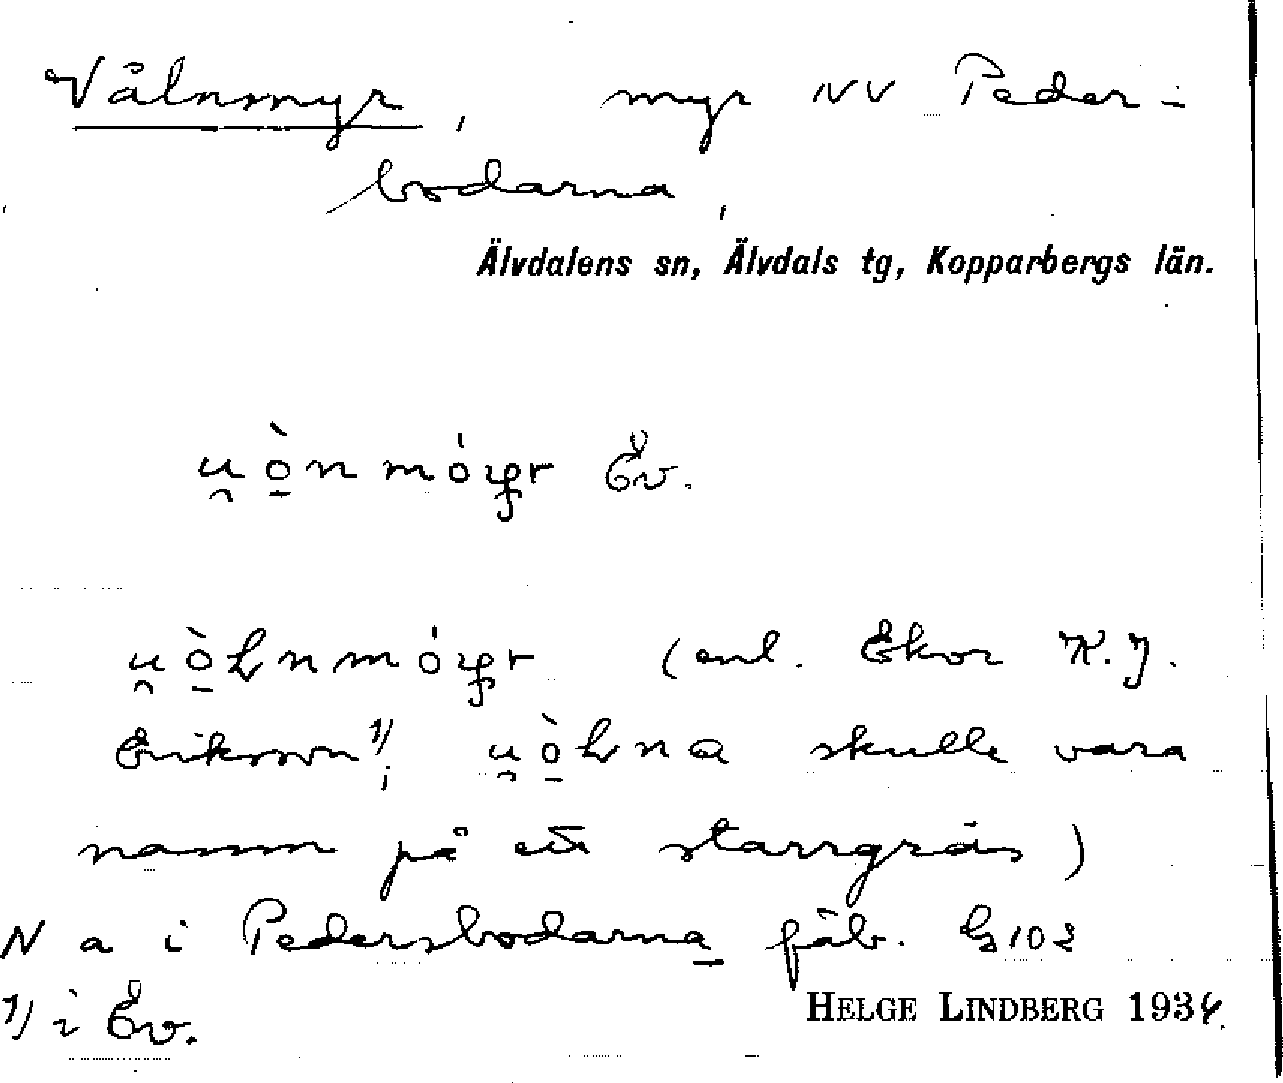 Vålnmyr, myr NV Peder-
bodarna,
Älvdalens sn, Älvdals tg, Kopparbergs län.
u̯ò̠n Ev.
(enl. Ekor K. J.
Erikson 1), u̯ò̠Lna skulle vara
namn på ett starrgräs)
N a i Pedersbodarna fäb. G 102
1) i Ev.
HELGE LINDBERG 1934.